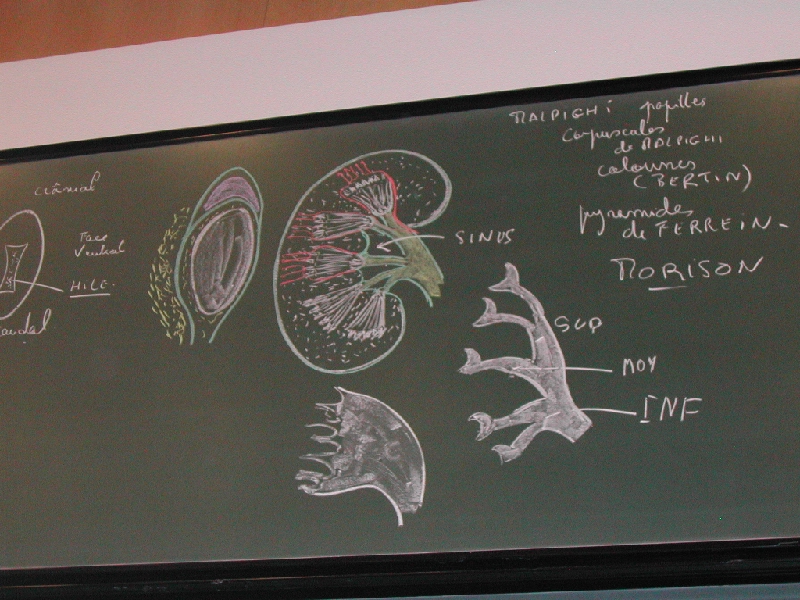 crânial
Face
Ventral
HILE
caudal
SINUS
MALPIGHI papilles
corpuscules
de MALPIGHI
colonnes
(BERTIN)
pyramides
de FERREIN-
MORISON
SUP
MOY
INF